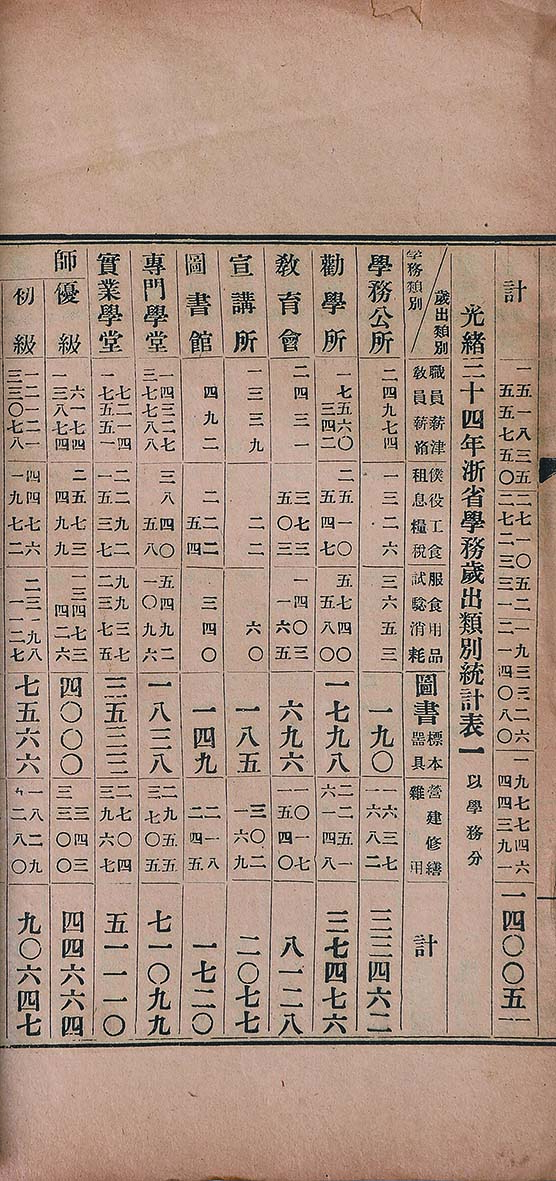 計 一五一八三五 五五七五〇 二七一〇五 二七二三三 二一九三三二六 一二一四〇八〇 一九七七四六 四四三九一 一四〇〇五一
光緒三十四年浙省學務歲出類別統計表一 以學務分
歲出類別 學務類別 職員薪津 教員薪脩 僕役工食 租息糧稅 服食用品 試驗消耗 圖書 標本 器具 營建修繕 雜用 計
學務公所 二四九七四 一三二六 三六五三 一九〇 一六三七 一六八二 三三四六二
勸學所 一七五六〇 三四二 二五一〇 五四七 五七四〇 五八〇 一七九八 二二五一 六一四八 三七四七六
教育會 二四三一 三七三 五〇三 一四〇三 一六五 六九六 一〇一七 一五四〇 八一二八
宣講所 一三三九 二二 六〇 一八五 三〇二 一六九 二〇七七
圖書館 四九二 二二二 五四 三四〇 一四九 二一八 二四五 一七二〇
專門學堂 一四三二七 三七七八八 三八四〇 五八 五四九二 一〇九六 一八三八 二九五五 三七〇五 七一〇九九
實業學堂 七二一四 一七五五一 二二九二 一五三二 九九三七 二三七五 三五三三 二七〇四 三九六七 五一一一〇
師 優級 六一七四 一三八七四 二五七三 四九九 一三四七三 四二六 四〇〇〇 三四三 三三〇〇 四四六六四
初級 一二一二一 三三〇七八 四四七六 一九七二 二三一九八 一一二七 七五六六 一八二九 五二八〇 九〇六四七